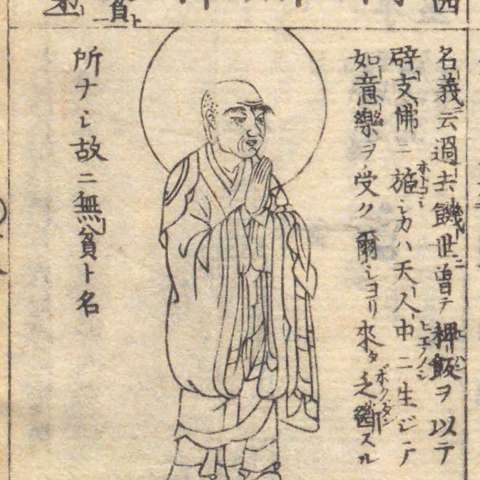 名義云過去饑世曽テ稗飯ヲ以テ
辟支佛ニ施シカハ天人中ニ生ジテ
如意樂ヲ受ク爾シヨリ來タ乏匱スル
所ナシ故ニ無貧ト名